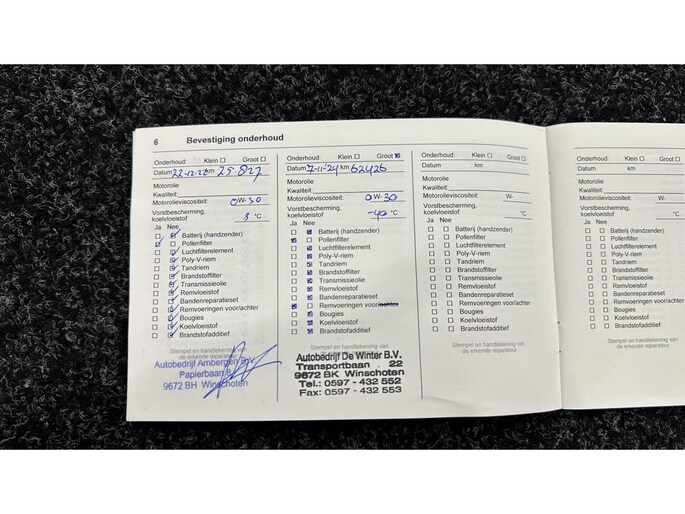 6 Bevestiging onderhoud
Onderhoud: Klein ☐ Groot ☐
Datum 22-12-22 km 25.827
Motorolie
Kwaliteit:
Motorolieviscositeit: 0 W-30
Vorstbescherming,
koelvloeistof °C
Ja Nee
Batterij (handzender)
Pollenfilter
Luchtfilterelement
Poly-V-riem
Tandriem
Brandstoffilter
Transmissieolie
Remvloeistof
Bandenreparatieset
Remvoeringen voor/achter
Bougies
Koelvloeistof
Brandstofadditief
Stempel en handtekening van
de erkende reparateur
Autobedrijf Ambergen B.V.
Papierbaan
9672 BH Winschoten
Onderhoud: Klein ☐ Groot ☒
Datum 7-11-24 km 62426
Motorolie
Kwaliteit:
Motorolieviscositeit: 0 W-30
Vorstbescherming,
koelvloeistof -40 °C
Ja Nee
Batterij (handzender)
Pollenfilter
Luchtfilterelement
Poly-V-riem
Tandriem
Brandstoffilter
Transmissieolie
Remvloeistof
Bandenreparatieset
Remvoeringen voor/achter
Bougies
Koelvloeistof
Brandstofadditief
Autobedrijf De Winter B.V.
Transportbaan . 22
9672 BK Winschoten
Tel.: 0597 - 432 552
Fax: 0597 - 432 553
Onderhoud: Klein ☐ Groot ☐
Datum km
Motorolie
Kwaliteit:
Motorolieviscositeit: W-
Vorstbescherming,
koelvloeistof °C
Ja Nee
Batterij (handzender)
Pollenfilter
Luchtfilterelement
Poly-V-riem
Tandriem
Brandstoffilter
Transmissieolie
Remvloeistof
Bandenreparatieset
Remvoeringen voor/achter
Bougies
Koelvloeistof
Brandstofadditief
Stempel en handtekening van
de erkende reparateur
Onderhoud: Klein ☐ Groot ☐
Datum km
Motorolie
Kwaliteit:
Motorolieviscositeit: W-
Vorstbescherming,
koelvloeistof °C
Ja Nee
Batterij (handzender)
Pollenfilter
Luchtfilterelement
Poly-V-riem
Tandriem
Brandstoffilter
Transmissieolie
Remvloeistof
Bandenreparatieset
Remvoeringen voor/achter
Bougies
Koelvloeistof
Brandstofadditief
Stempel en handtekening van
de erkende reparateur